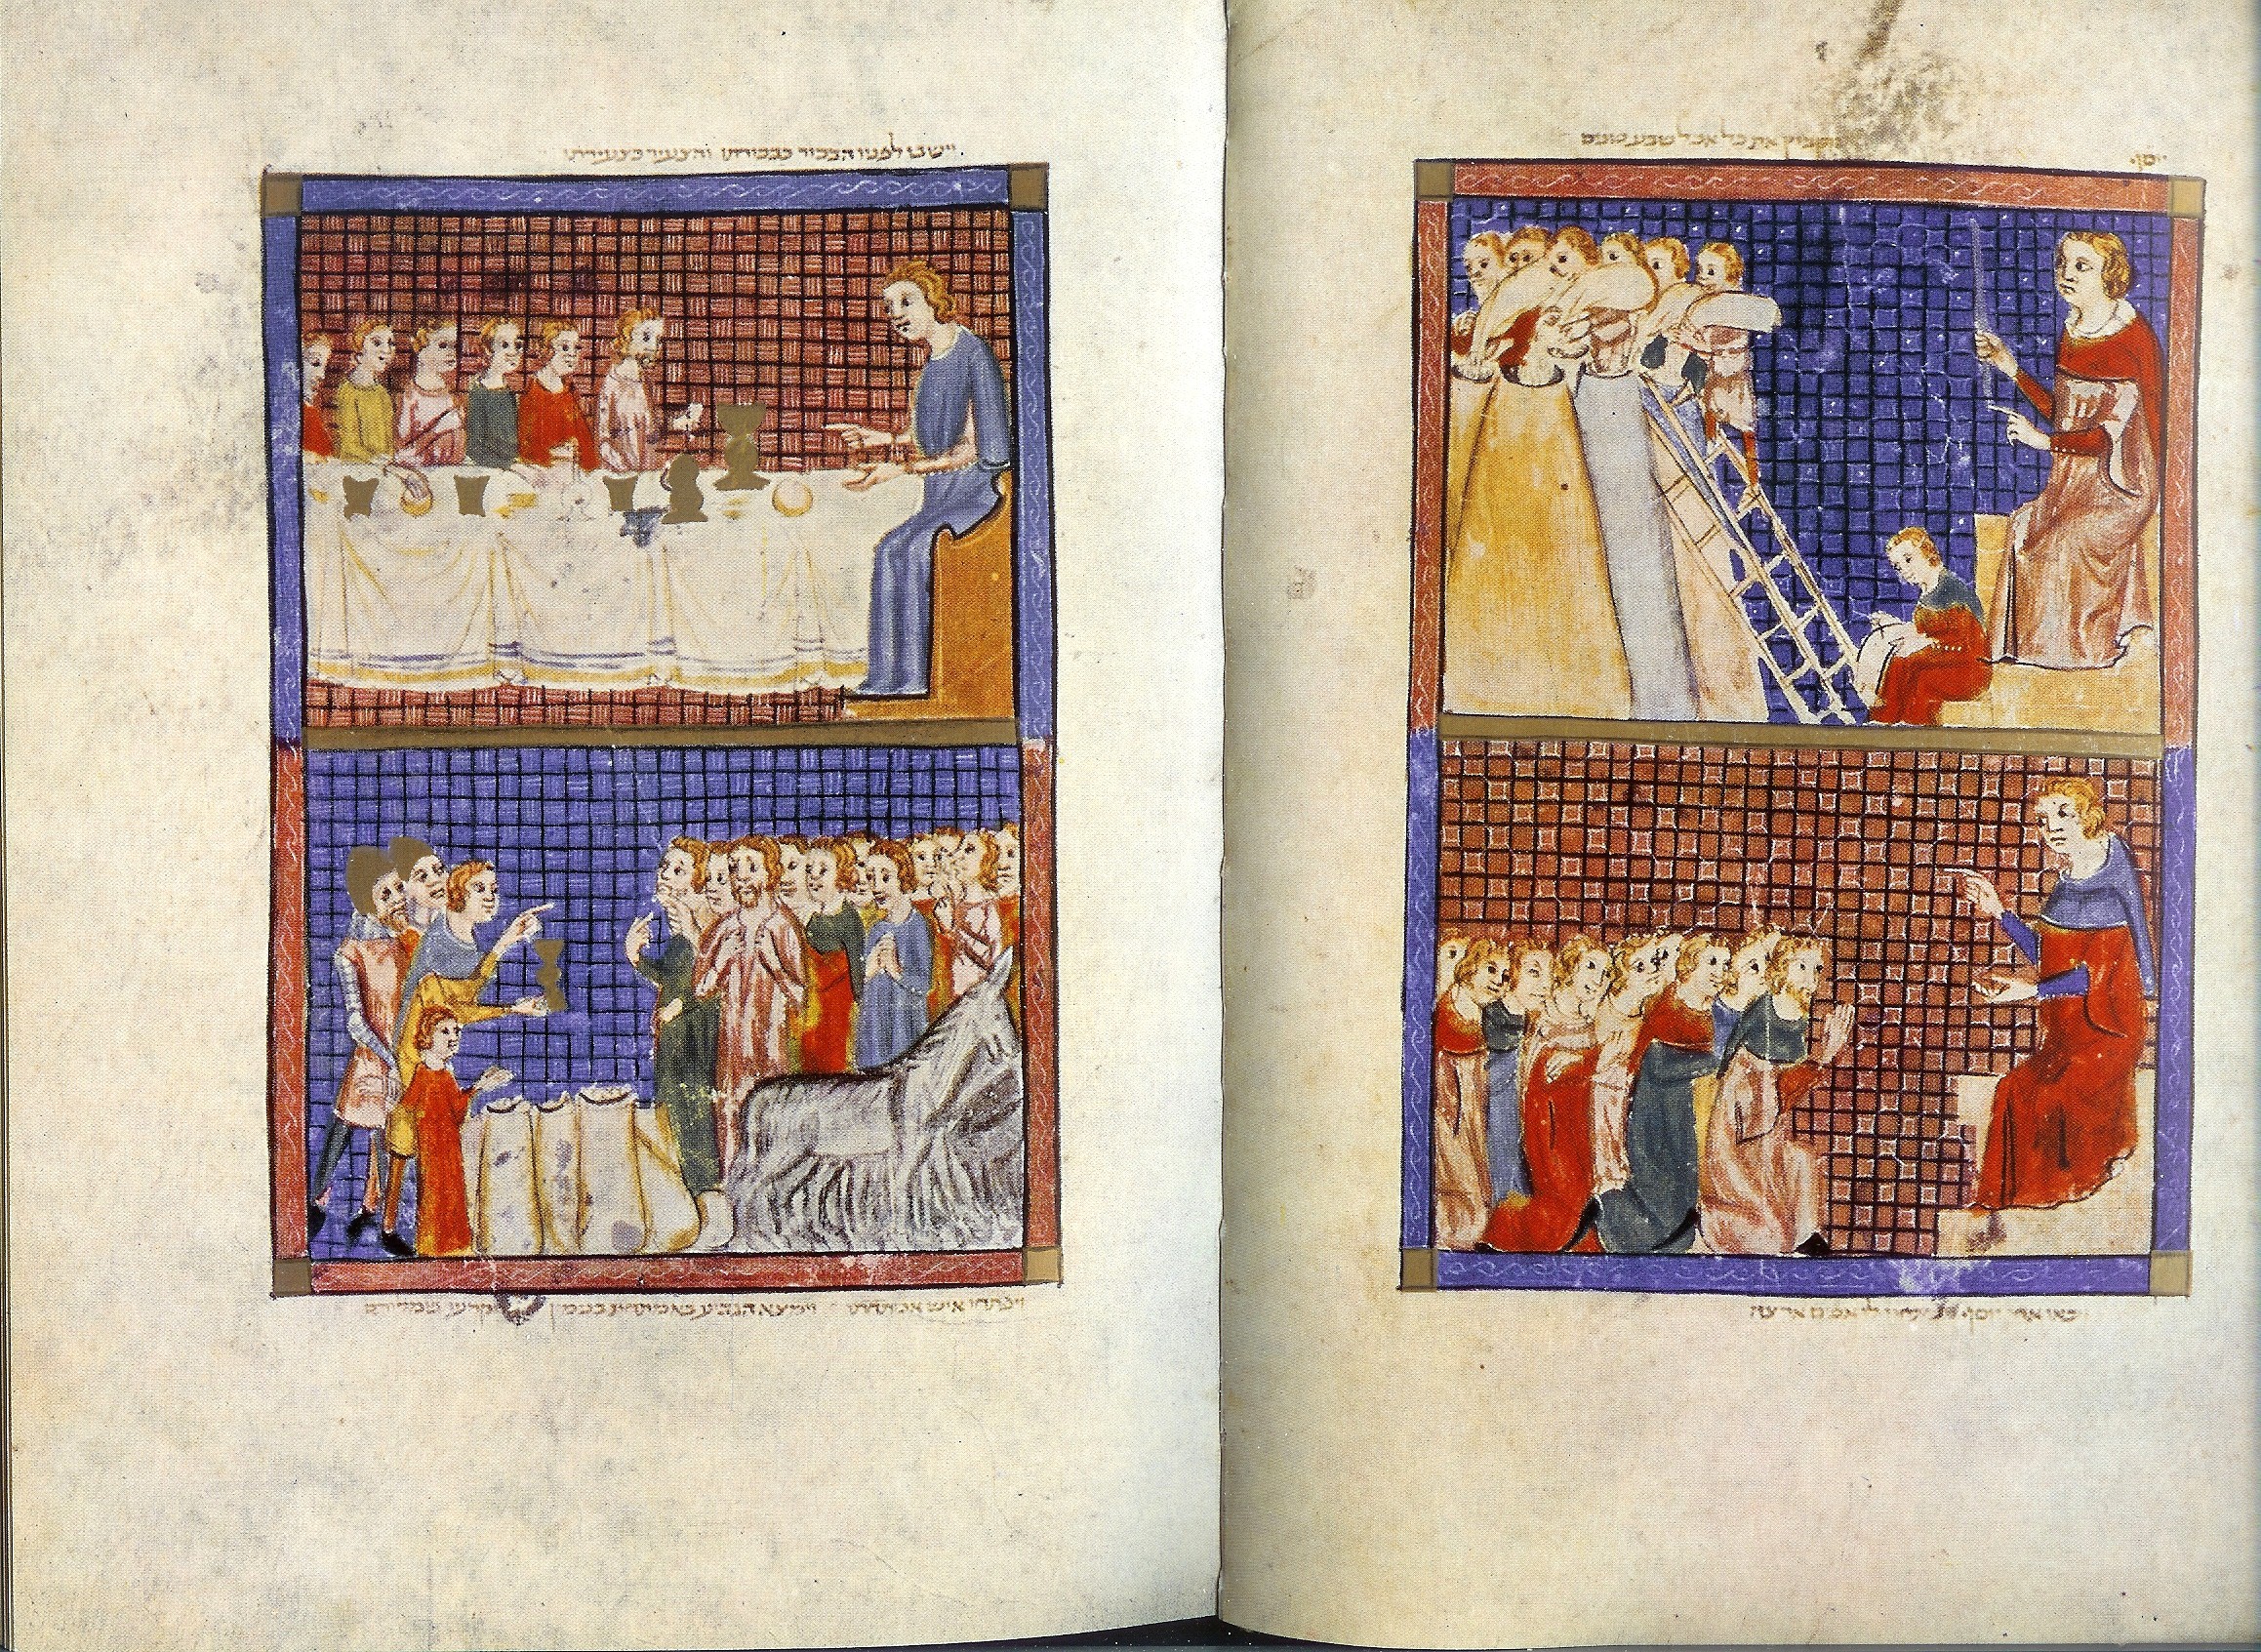 ויקבץ את כל אכל שבע שנים
ויבאו אחי יוסף וישתחוו לו אפים ארצה
וישבו לפניו הבכור כבכורתו והצעיר כצעירתו
ויפתחו איש אמתחתו וימצא הגביע באמתחת בנימן ויקרעו שמלותם